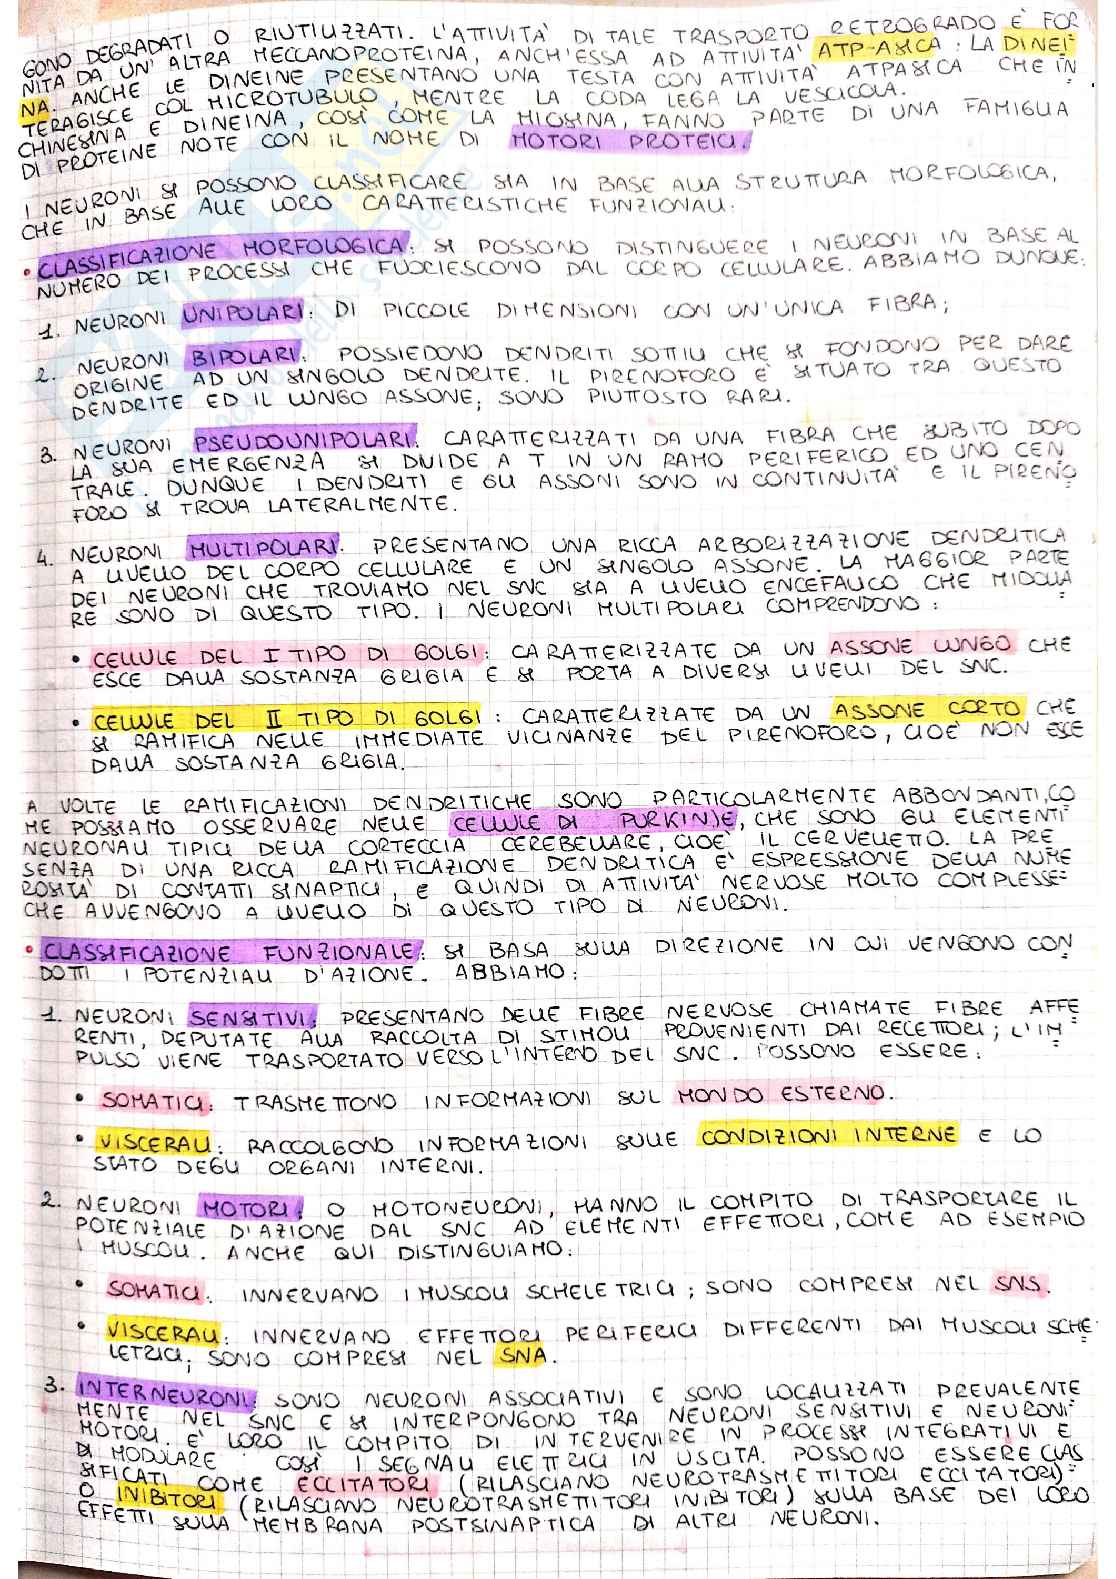 GONO DEGRADATI O RIUTILIZZATI. L'ATTIVITA' DI TALE TRASPORTO RETROGRADO E' FOR
NITA DA UN' ALTRA MECCANOPROTEINA, ANCH'ESSA AD ATTIVITA' ATP-ASICA: LA DINEI-
NA. ANCHE LE DINEINE PRESENTANO UNA TESTA CON ATTIVITA' ATPASICA CHE IN-
TERAGISCE COL MICROTUBULO, MENTRE LA CODA LEGA LA VESCICOLA.
CHINESINA E DINEINA, COSI' COME LA MIOSINA, FANNO PARTE DI UNA FAMIGLIA
DI PROTEINE NOTE CON IL NOME DI MOTORI PROTEICI.
I NEURONI SI POSSONO CLASSIFICARE SIA IN BASE ALLA STRUTTURA MORFOLOGICA,
CHE IN BASE ALLE LORO CARATTERISTICHE FUNZIONALI:
• CLASSIFICAZIONE MORFOLOGICA: SI POSSONO DISTINGUERE I NEURONI IN BASE AL
NUMERO DEI PROCESSI CHE FUORIESCONO DAL CORPO CELLULARE. ABBIAMO DUNQUE:
1. NEURONI UNIPOLARI: DI PICCOLE DIMENSIONI CON UN'UNICA FIBRA;
2. NEURONI BIPOLARI: POSSIEDONO DENDRITI SOTTILI CHE SI FONDONO PER DARE
ORIGINE AD UN SINGOLO DENDRITE. IL PIRENOFORO E' SITUATO TRA QUESTO
DENDRITE ED IL LUNGO ASSONE; SONO PIUTTOSTO RARI.
3. NEURONI PSEUDOUNIPOLARI: CARATTERIZZATI DA UNA FIBRA CHE SUBITO DOPO
LA SUA EMERGENZA SI DIVIDE A T IN UN RAMO PERIFERICO ED UNO CEN
TRALE. DUNQUE I DENDRITI E GLI ASSONI SONO IN CONTINUITA' E IL PIRENO
FORO SI TROVA LATERALMENTE.
4. NEURONI MULTIPOLARI: PRESENTANO UNA RICCA ARBORIZZAZIONE DENDRITICA
A LIVELLO DEL CORPO CELLULARE E UN SINGOLO ASSONE. LA MAGGIOR PARTE
DEI NEURONI CHE TROVIAMO NEL SNC SIA A LIVELLO ENCEFALICO CHE MIDOLLA
RE SONO DI QUESTO TIPO. I NEURONI MULTIPOLARI COMPRENDONO:
• CELLULE DEL I TIPO DI GOLGI: CARATTERIZZATE DA UN ASSONE LUNGO CHE
ESCE DALLA SOSTANZA GRIGIA E SI PORTA A DIVERSI LIVELLI DEL SNC.
• CELLULE DEL II TIPO DI GOLGI: CARATTERIZZATE DA UN ASSONE CORTO CHE
SI RAMIFICA NELLE IMMEDIATE VICINANZE DEL PIRENOFORO, CIOE' NON ESCE
DALLA SOSTANZA GRIGIA.
A VOLTE LE RAMIFICAZIONI DENDRITICHE SONO PARTICOLARMENTE ABBONDANTI, CO
ME POSSIAMO OSSERVARE NELLE CELLULE DI PURKINJE, CHE SONO GLI ELEMENTI
NEURONALI TIPICI DELLA CORTECCIA CEREBELLARE, CIOE' IL CERVELLETTO. LA PRE
SENZA DI UNA RICCA RAMIFICAZIONE DENDRITICA E' ESPRESSIONE DELLA NUME
ROSITA' DI CONTATTI SINAPTICI, E QUINDI DI ATTIVITA' NERVOSE MOLTO COMPLESSE
CHE AVVENGONO A LIVELLO DI QUESTO TIPO DI NEURONI.
• CLASSIFICAZIONE FUNZIONALE: SI BASA SULLA DIREZIONE IN CUI VENGONO CON
DOTTI I POTENZIALI D'AZIONE. ABBIAMO:
1. NEURONI SENSITIVI: PRESENTANO DELLE FIBRE NERVOSE CHIAMATE FIBRE AFFE
RENTI, DEPUTATE ALLA RACCOLTA DI STIMOLI PROVENIENTI DAI RECETTORI; L'IM-
PULSO VIENE TRASPORTATO VERSO L'INTERNO DEL SNC. POSSONO ESSERE:
• SOMATICI: TRASMETTONO INFORMAZIONI SUL MONDO ESTERNO.
• VISCERALI: RACCOLGONO INFORMAZIONI SULLE CONDIZIONI INTERNE E LO
STATO DEGLI ORGANI INTERNI.
2. NEURONI MOTORI: O MOTONEURONI, HANNO IL COMPITO DI TRASPORTARE IL
POTENZIALE D'AZIONE DAL SNC AD ELEMENTI EFFETTORI, COME AD ESEMPIO
I MUSCOLI. ANCHE QUI DISTINGUIAMO:
• SOMATICI: INNERVANO I MUSCOLI SCHELETRICI; SONO COMPRESI NEL SNS.
• VISCERALI: INNERVANO EFFETTORI PERIFERICI DIFFERENTI DAI MUSCOLI SCHE-
LETRICI; SONO COMPRESI NEL SNA.
3. INTERNEURONI: SONO NEURONI ASSOCIATIVI E SONO LOCALIZZATI PREVALENTE
MENTE NEL SNC E SI INTERPONGONO TRA NEURONI SENSITIVI E NEURONI
MOTORI. E' LORO IL COMPITO DI INTERVENIRE IN PROCESSI INTEGRATIVI E
DI MODULARE COSI' I SEGNALI ELETTRICI IN USCITA. POSSONO ESSERE CLAS
SIFICATI COME ECCITATORI (RILASCIANO NEUROTRASMETTITORI ECCITATORI)
O INIBITORI (RILASCIANO NEUROTRASMETTITORI INIBITORI) SULLA BASE DEI LORO
EFFETTI SULLA MEMBRANA POSTSINAPTICA DI ALTRI NEURONI.